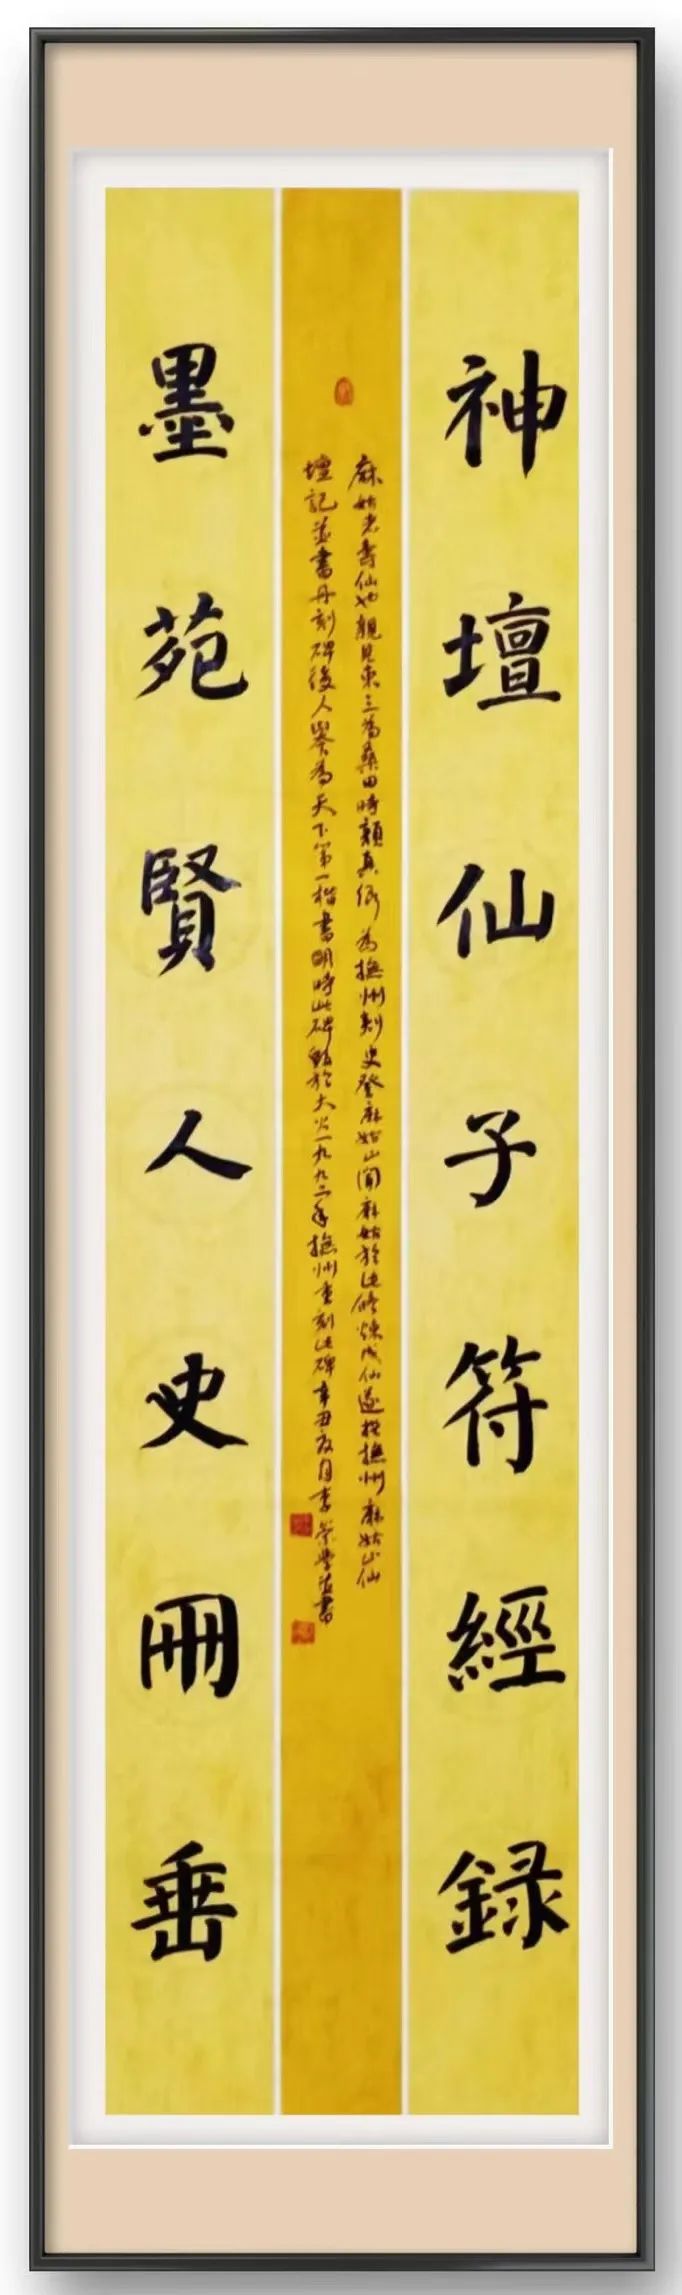 神壇仙子符經錄
麻姑老壽仙也親見東三為桑田時顏真卿為撫州刺史登麻姑山聞麻姑於此修煉成仙遂撰撫州麻姑山仙
壇記並書丹刻碑後人譽為天下第一楷書明時此碑毀於大火一九九二年撫州重刻此碑辛丑夏月李榮學並書
墨苑賢人史冊垂